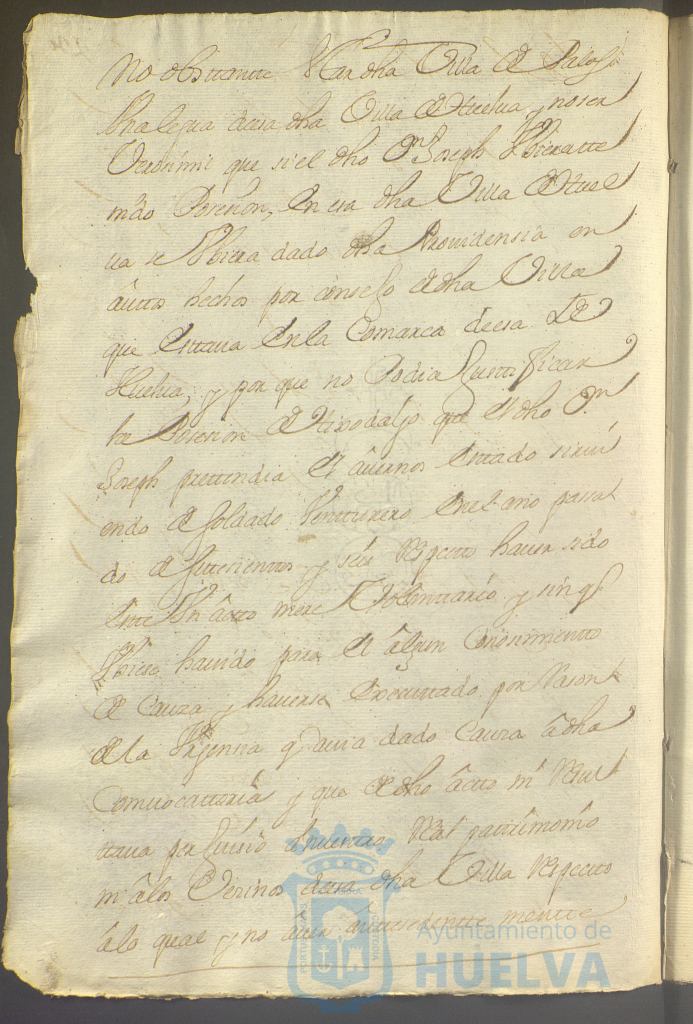 No obstante star dha Villa de Palos
Una legua de esa dha Villa de Huelua, y no ser
Verosimil que si el dho Dn Joseph Ubiera tte
nido Posesion, en esa dha Villa de Huel
ua se Ubiera dado dha Prouidensia en
autos hechos por consejo de dha Villa
que estaua en la Comarca de esa de
Huelua, y por que no Podia Justificar
la Posesion de Hixodalgo que el dho Dn
Joseph prettendia el auernos estado siruí
endo de soldado Venturero en el año passa
do de settesientos y seis Respecto hauer sido
este Un acto mere Voluntario y sin q
Ubiese hauido para el algun Conosimiento
de Cauza y hauerse executado por Rason
de la Urgensia q auia dado Causa a dha
Comuocattoria y que de dho acto ni Resul
taua perjuisio a nuestro Real patrimonio
ni a los Vezinos de esa dha Villa Respecto
a lo qual y no auer antesedente mentte
Ayuntamiento de
HUELVA